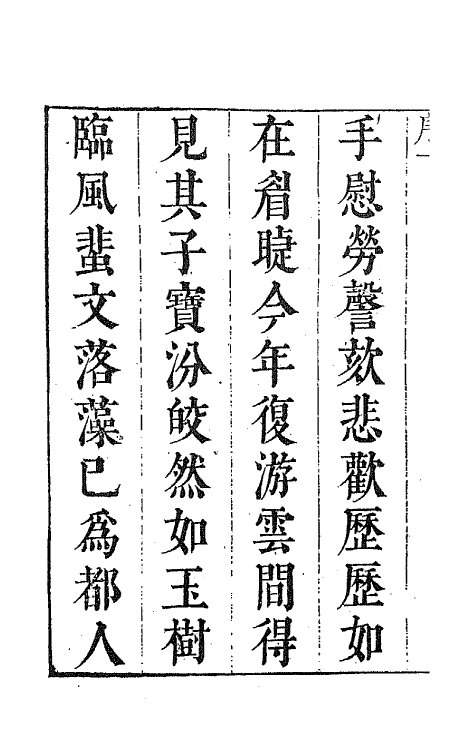 手慰勞謦欬悲歡歴歴如
在眉睫今年復游雲間得
見其子寶汾皎然如玉樹
臨風蜚文落藻已爲都人